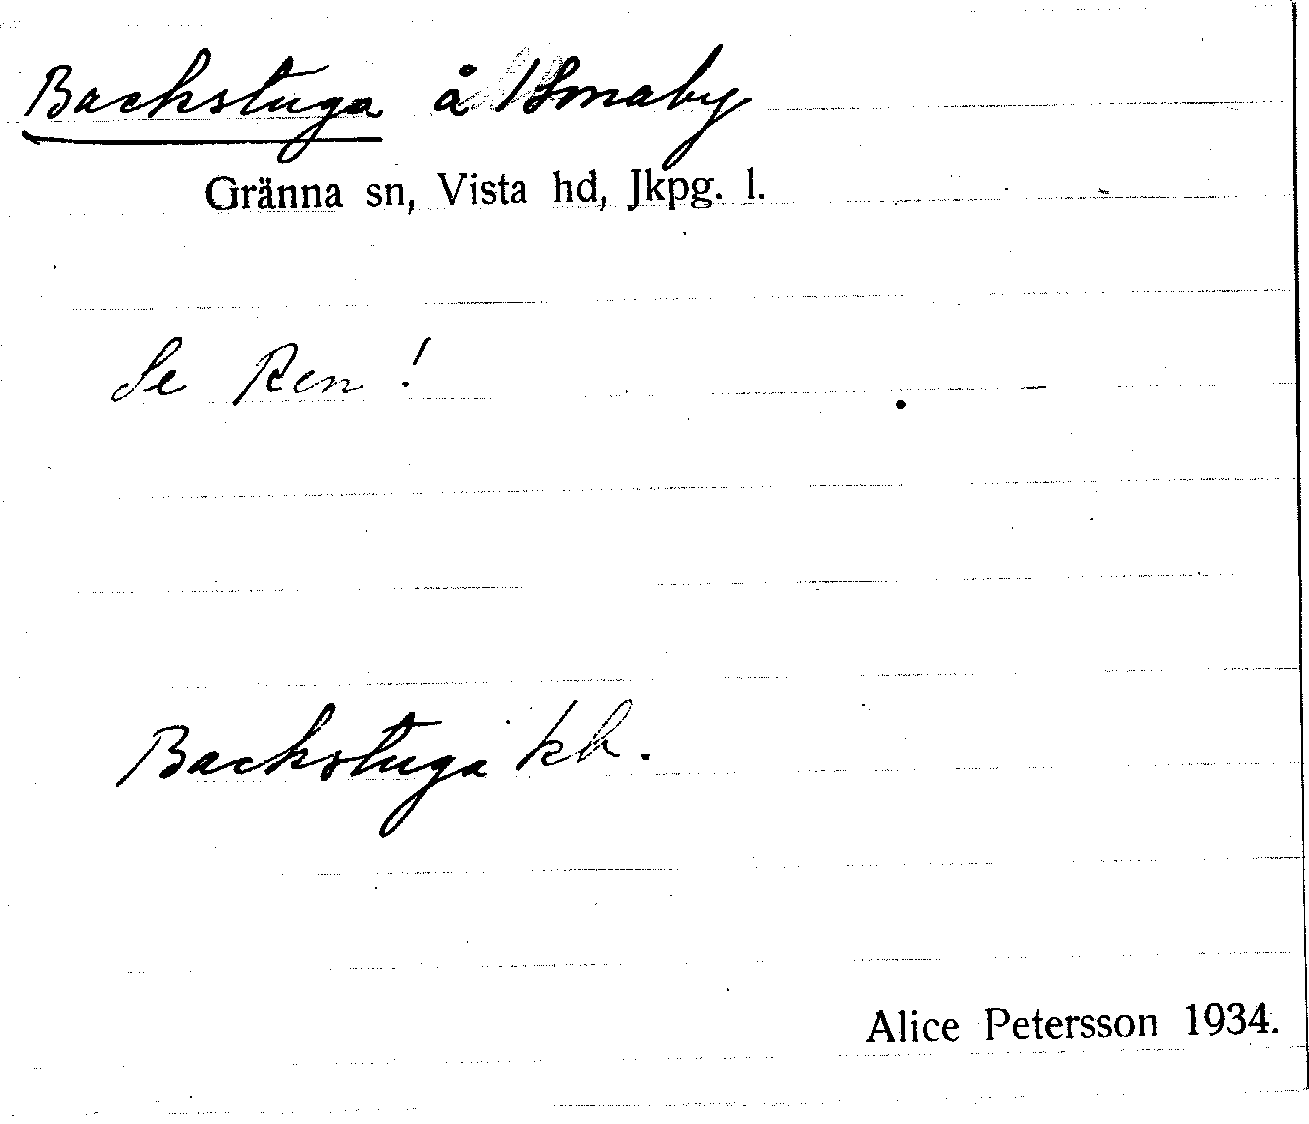 Backstuga å Småby
Gränna sn, Vista hd, Jkpg. l.
Se Ren!
Backstuga kb.
Alice Petersson 1934.